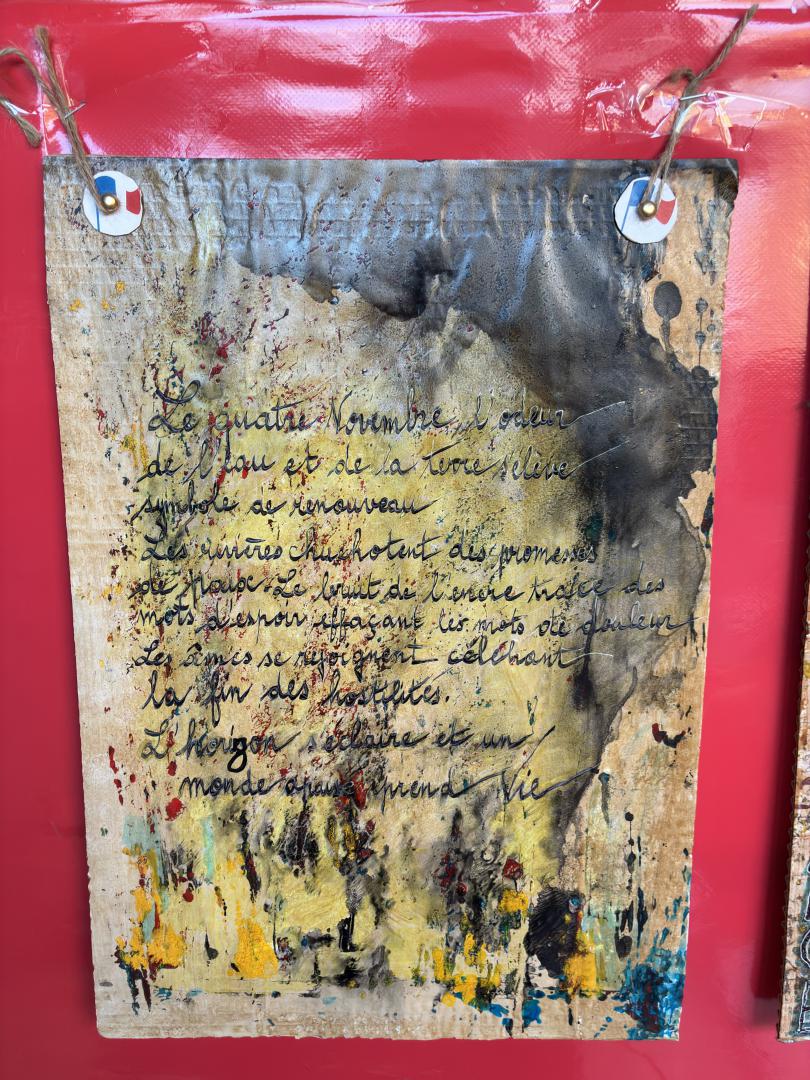 Le quatre Novembre, l'odeur
de l'eau et de la terre s'élève
symbole de renouveau
Les rivières chuchotent des promesses
de paix. Le bruit de l'encre tracée des
mots d'espoir effaçant les mots de douleur
Les âmes se rejoignent célébrant
la fin des hostilités.
L'horizon s'éclaire et un
monde apaisé prend vie